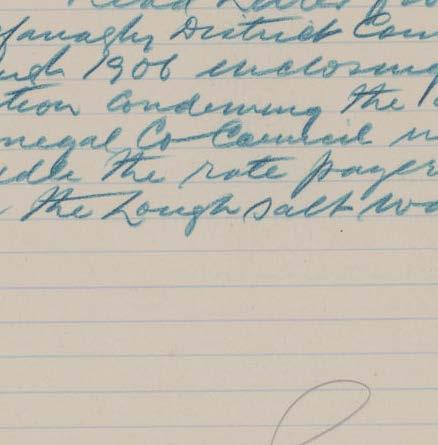 Read Letter
fanaghy District Coun
1906 enclosing
tion condemning the
negal Co Council
dle the rate payer
the Lough Salt